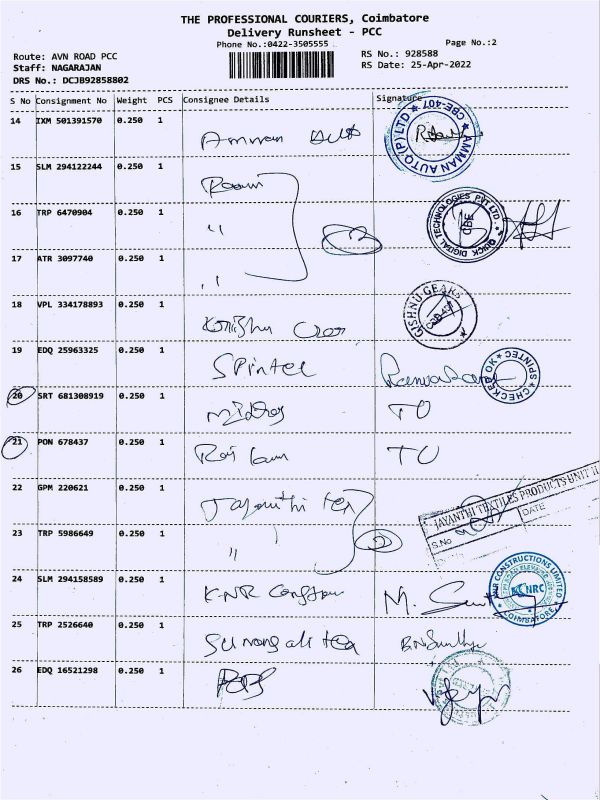 THE PROFESSIONAL COURIERS, Coimbatore
Delivery Runsheet - PCC
Phone No.:0422-3505555
Page No.:2
Route: AVN ROAD PCC
Staff: NAGARAJAN
DRS No.: DCJB92858802
RS No.: 928588
RS Date: 25-Apr-2022
S No Consignment No Weight PCS Consignee Details Signature
14 IXM 501391570 0.250 1
AMMAN AUTO (P) LTD * CBE-407
15 SLM 294122244 0.250 1
16 TRP 6470904 0.250 1 "
QUICK DIGITAL TECHNOLOGIES PVT LTD. * CBE
17 ATR 3097740 0.250 1 "
18 VPL 334178893 0.250 1
GISHNU GEARS
19 EDQ 25963325 0.250 1 Spintec
SPINTEC * CHECKED OK *
20 SRT 681308919 0.250 1
21 PON 678437 0.250 1
22 GPM 220621 0.250 1 Jayanthi tex
JAYANTHI TEXTILES PRODUCTS UNIT II
S.No DATE
23 TRP 5986649 0.250 1 " 2
24 SLM 294158589 0.250 1 KNR
KNR CONSTRUCTIONS LIMITED
KNRC
COIMBATORE
25 TRP 2526640 0.250 1
26 EDQ 16521298 0.250 1